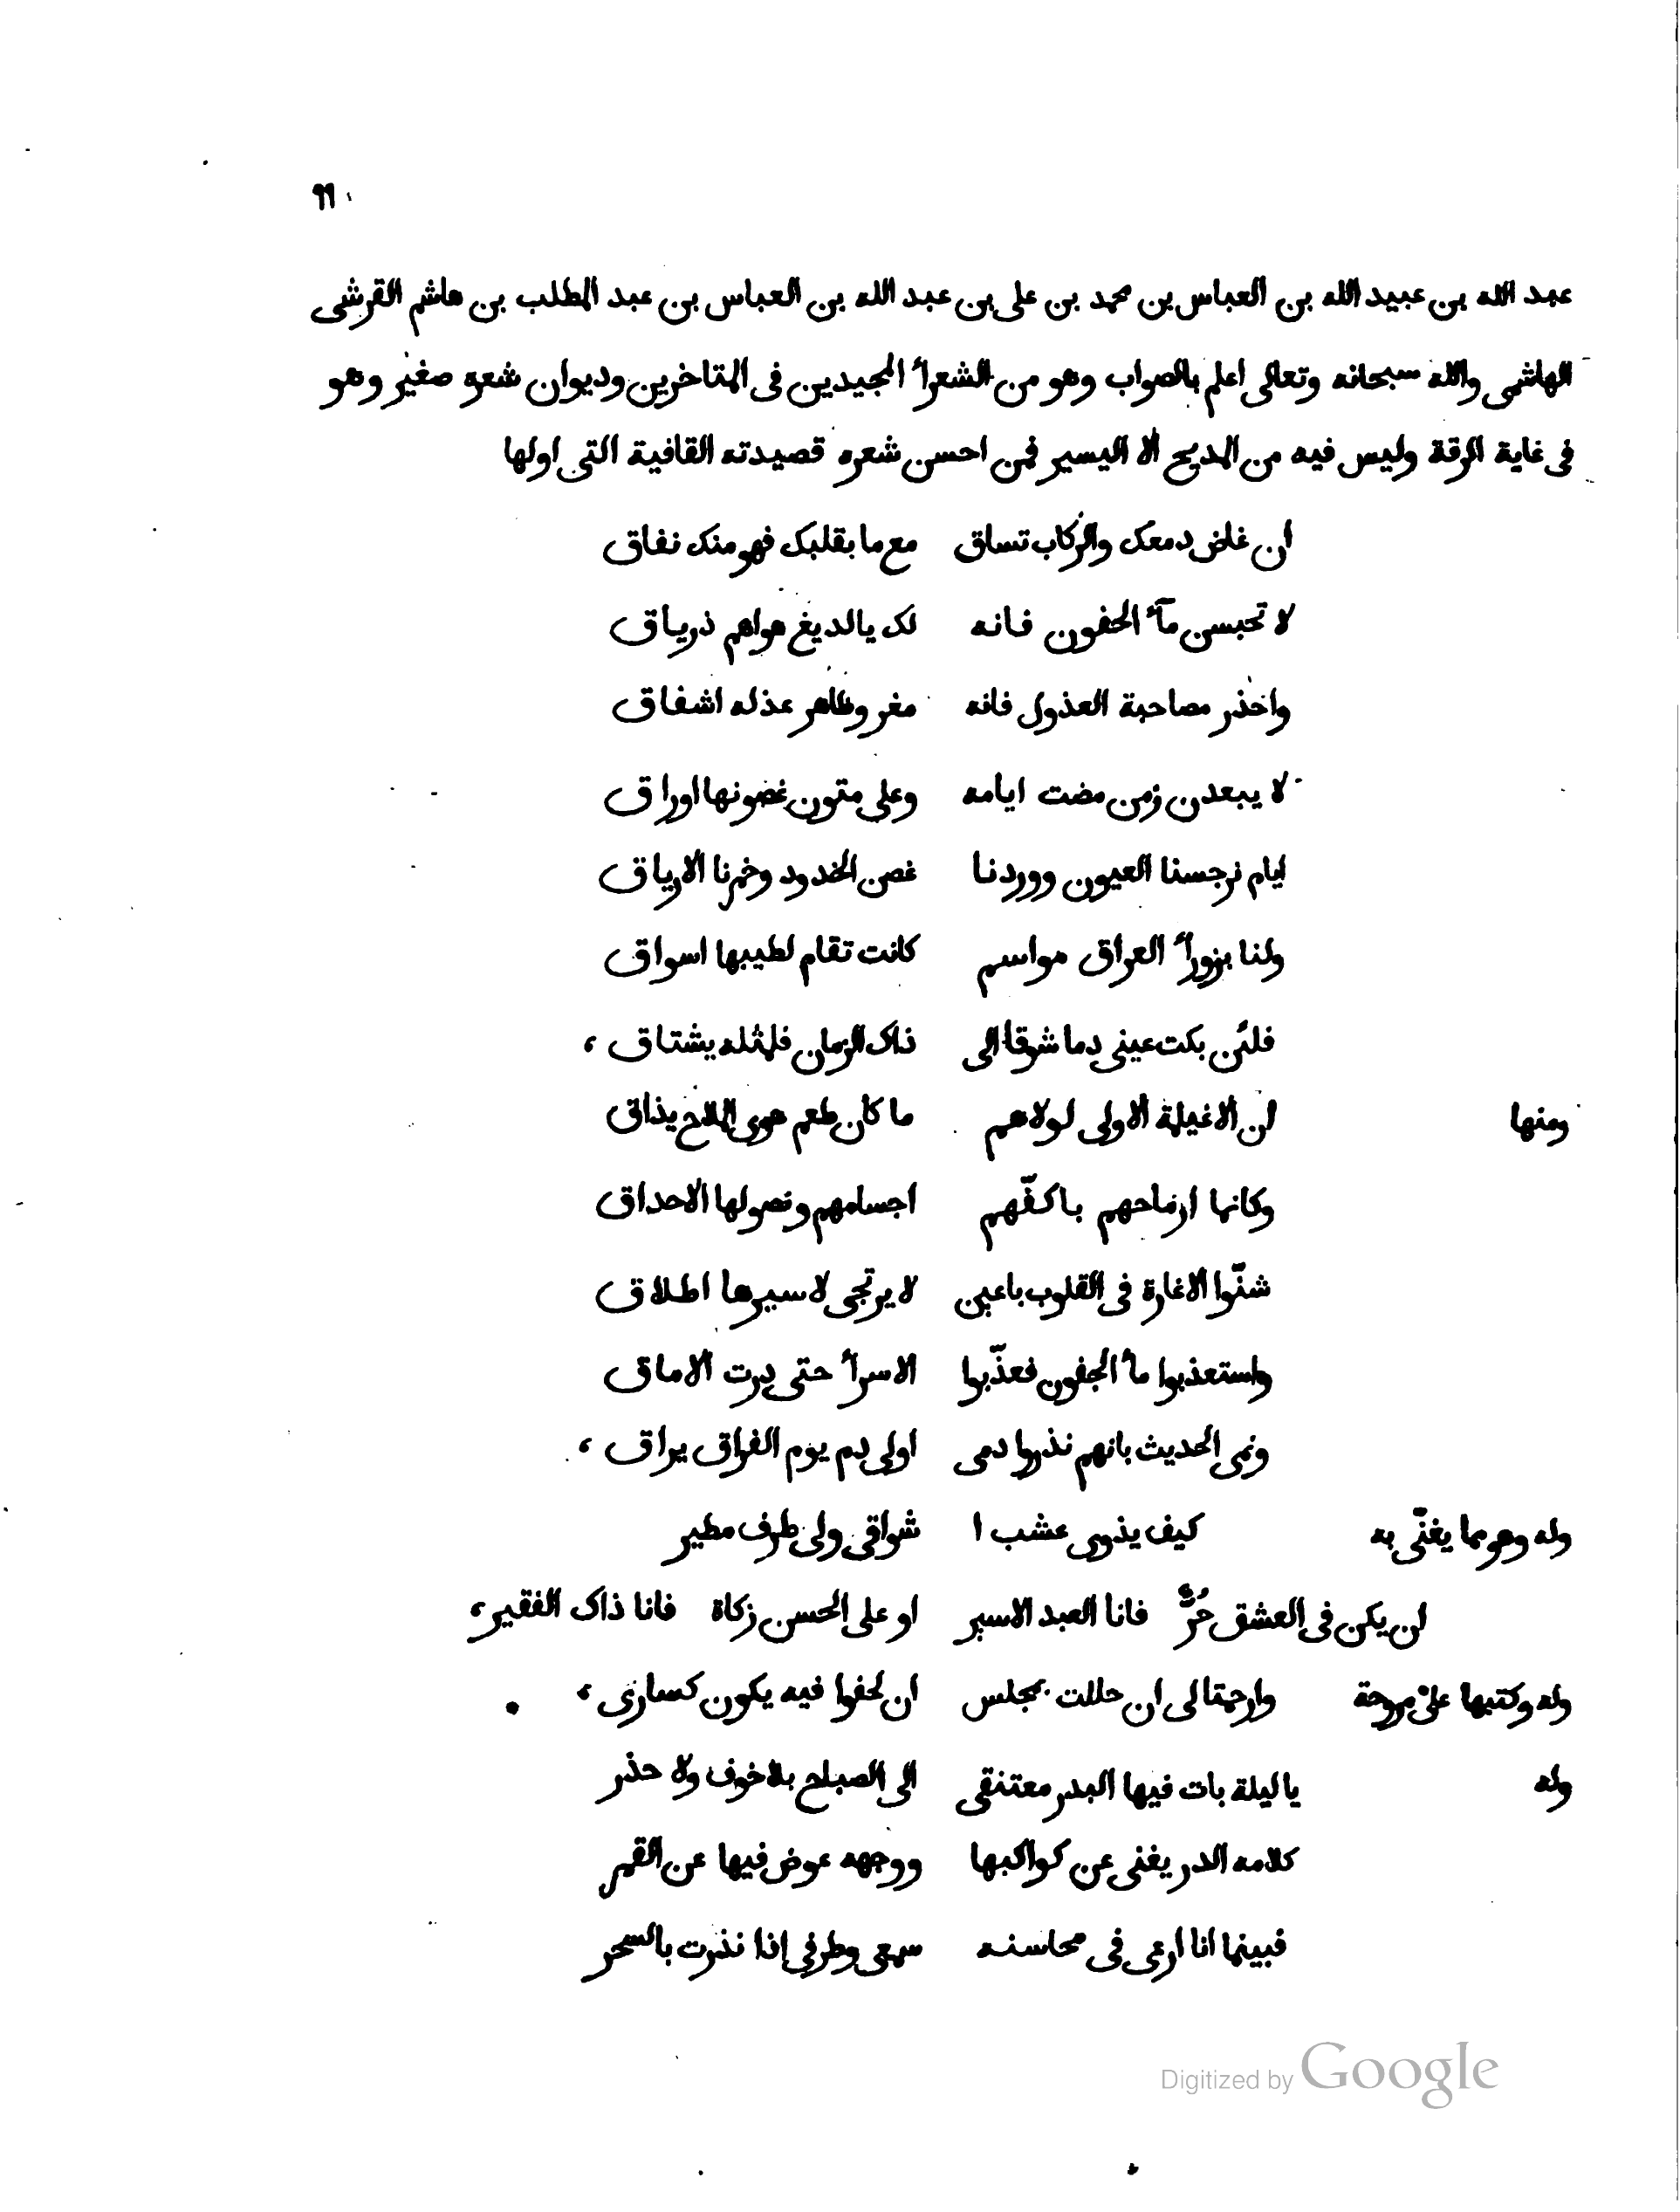 ٩٩
عبد الله بن عبيد الله بن العباس بن محمد بن على بن عبد الله بن العباس بن عبد المطلب بن هاشم القرشى
الهاشمى والله سبحانه وتعالى اعلم بالصواب وهو من الشعرأ المجيدين فى المتاخرين وديوان شعره صغير وهو
فى غاية الرقة وليس فيه من المديح الا اليسير فمن احسن شعره قصيدته القافية التى اولها
ان غاض دمعك والركاب تساق مع ما بقلبك فهو منك نفاق
لا تحبسن مآ الجفون فانه لك يالديغ هواهم ذرياق
واحذر مصاحبة العذول فانه مغر وظاهر عذله اشفاق
لا يبعدن زمن مضت ايامه وعلى متون غصونها اوراق
ايام نرجسنا العيون ووردنا غصن الخدود وخمرنا الارياق
ولنا بزورأ العراق مواسم كانت تقام لطيبها اسواق
فلئن بكت عينى دما شوقا الى ذاك الزمان فلمثله يشتاق ،
ومنها ان الاغيلمة الاولى لولاهم ما كان طعم هوى الملاح يذاق
وكانما ارماحهم باكفّهم اجسامهم ونصولها الاحداق
شنّوا الاغارة فى القلوب باعين لا يرتجى لاسيرها اطلاق
واستعذبوا مأ الجفون فعذّبوا الاسرأ حتى درت الاماق
ونمى الحديث بانهم نذروا دمى اولى دم يوم الفراق يراق ،
وله وهو مما يغنّى به كيف يذوى عشب ا شواقى ولى طرف مطير
ان يكن فى العشق حُرٌّ فانا العبد الاسير او على الحسن زكاة فانا ذاك الفقير ،
وله وكتبها على مروحة وارحمتا لى ان حللت بمجلس ان لحفوا فيه يكون كسارى ،
وله يا ليلة بات فيها البدر معتنقى الى الصباح بلا خوف ولا حذر
كلامه الدر يغنى عن كواكبها ووجهه عوض فيها عن القمر
فبينما انا ارعى فى محاسنه سمعى وطرفى اذا نذرت بالسحر
Digitized by Google